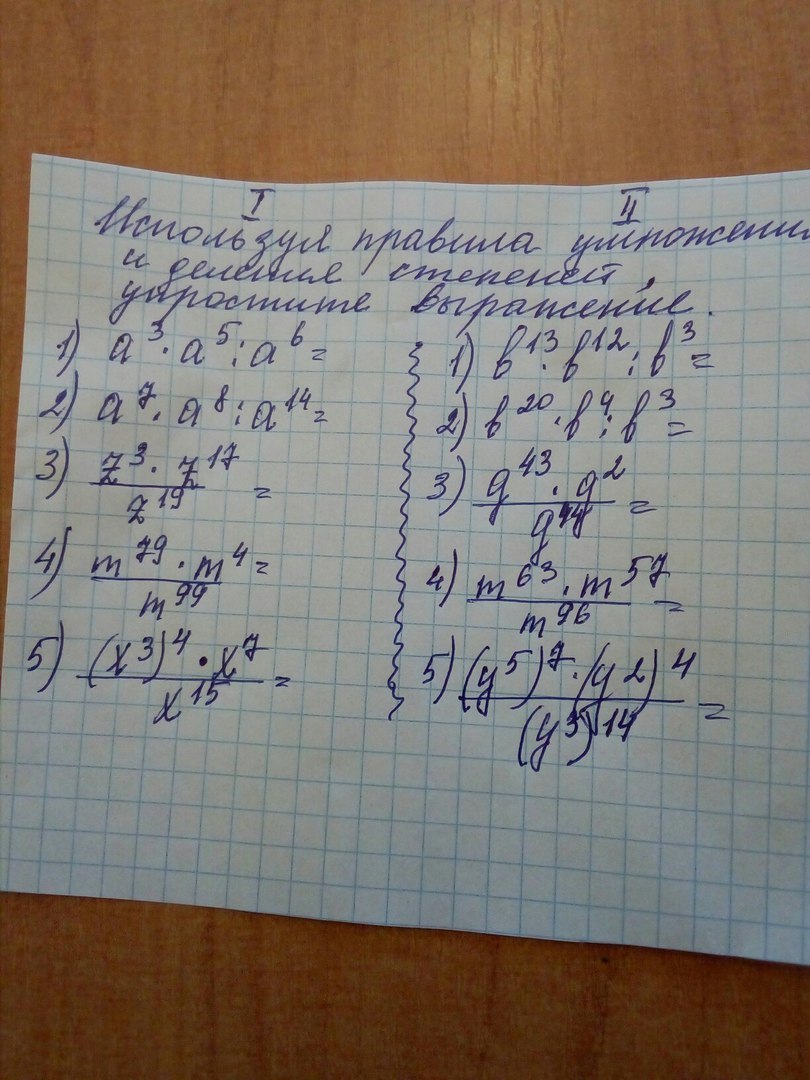 I II
Используя правила умножения
и деления степеней,
упростите выражение.
1) a³ · a⁵ : a⁶ =
2) a⁷ · a⁸ : a¹⁴ =
3) z³ · z¹⁷ / z¹⁹ =
4) m⁷⁹ · m⁴ / m⁹⁹ =
5) (x³)⁴ · x⁷ / x¹⁵ =
1) b¹³ · b¹² : b³ =
2) b²⁰ · b⁴ : b³ =
3) g⁴³ · g² / g⁴⁴ =
4) m⁶³ · m⁵⁷ / m⁹⁶ =
5) (y⁵)⁷ · (y²)⁴ / (y³)¹⁴ =